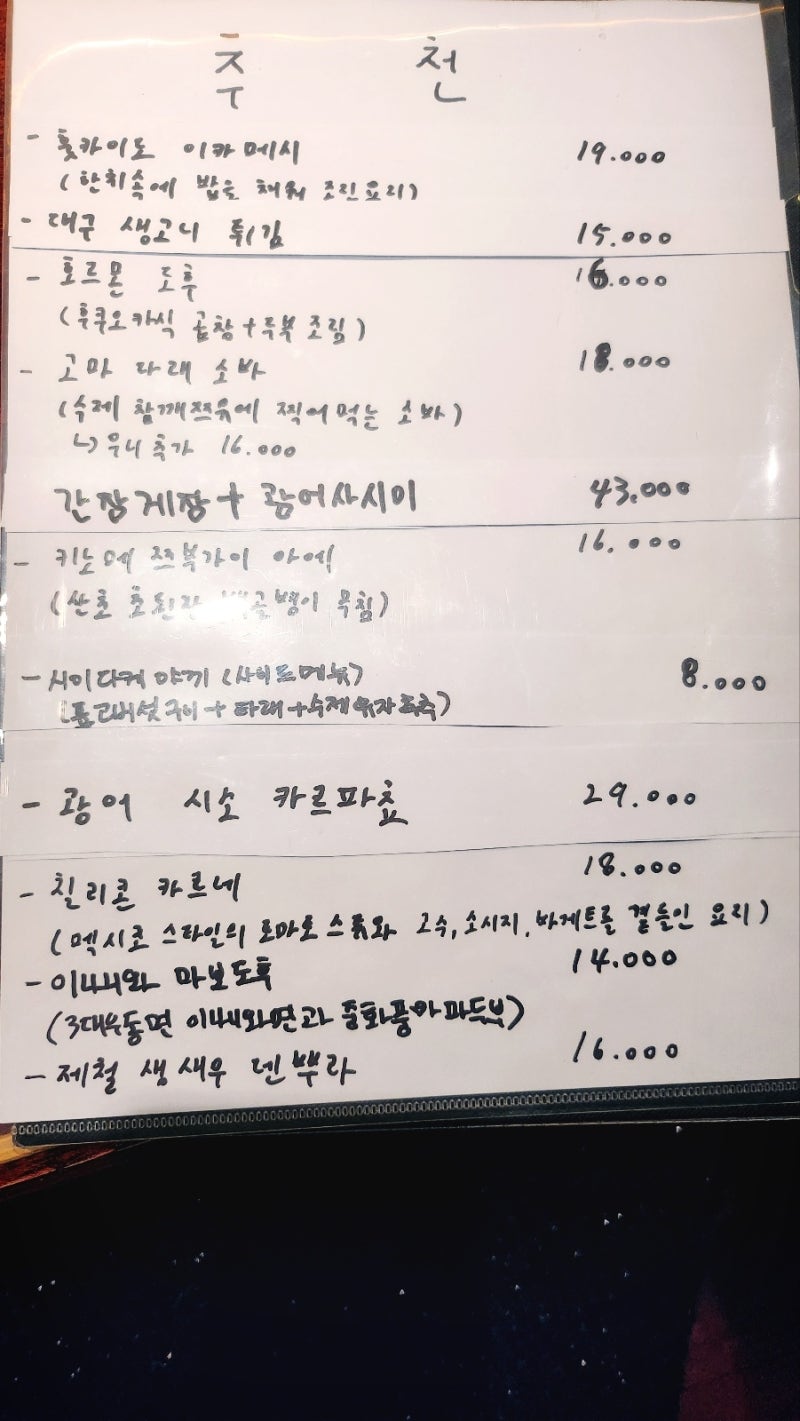 추 천
- 홋카이도 이카메시 19.000
(한치속에 밥을 채워 조린요리)
- 대구 생고니 튀김 15.000
- 호르몬 도후 16.000
(후쿠오카식 곱창+두부 조림)
- 고마 다래 소바 18.000
(수제 참깨쯔유에 찍어먹는 소바)
↳ 우니추가 16.000
간장게장+광어사시미 43.000
- 키노메 쯔부가이 아에 16.000
(산초 초된장 백골뱅이 무침)
- 시이다케 야끼 (사이드메뉴) 8.000
(표고버섯구이+타래+수제유자후추)
- 광어 시소 카르파쵸 29.000
- 칠리콘 카르네 18.000
(멕시코 스타일의 토마토 스튜와 고수, 소시지, 바게트를 곁들인 요리)
- 이나니와 마보도후 14.000
(3대우동면 이나니와면과 중화풍마파두부)
- 제철 생새우 덴뿌라 16.000